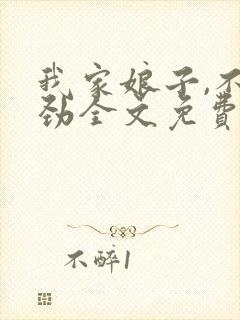 我家娘子,不
劲全文免费
不醉1